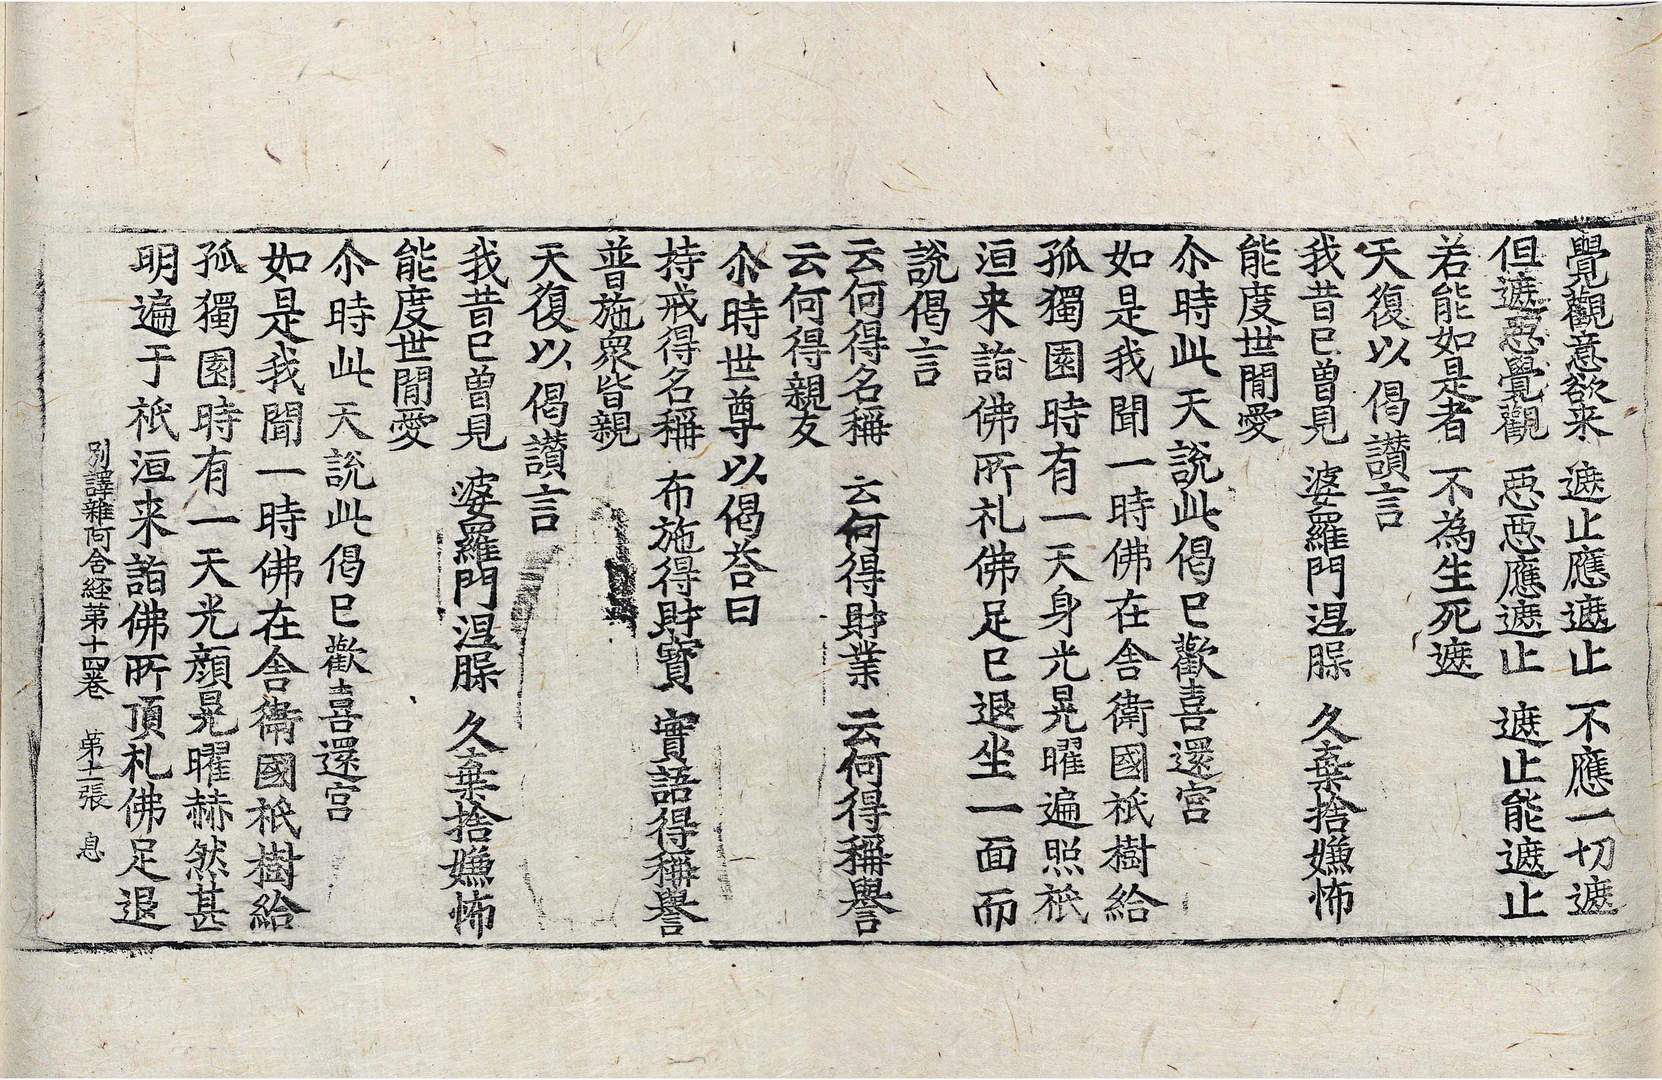 覺觀意欲来　遮止應遮止　不應一切遮
但遮惡覺觀　惡惡應遮止　遮止能遮止
若能如是者　不為生死遮
天復以偈讃言
我昔已曾見　婆羅門涅槃　久棄捨嫌怖
能度世閒愛
尒時此天說此偈已歡喜還宮
如是我聞一時佛在舎衛國祇樹給
孤獨園時有一天身光晃曜遍照祇
洹来詣佛所礼佛足已退坐一面而
說偈言
云何得名稱　云何得財業　云何得稱譽
云何得親友
尒時世尊以偈荅曰
持戒得名稱　布施得財寶　實語得稱譽
普施衆皆親
天復以偈讃言
我昔已曾見　婆羅門涅槃　久棄捨嫌怖
能度世閒愛
尒時此天說此偈已歡喜還宮
如是我聞一時佛在舎衛國祇樹給
孤獨園時有一天光顔晃曜赫然甚
明遍于祇洹来詣佛所頂礼佛足退
別譯雜阿含経第十四卷　第十二張　息